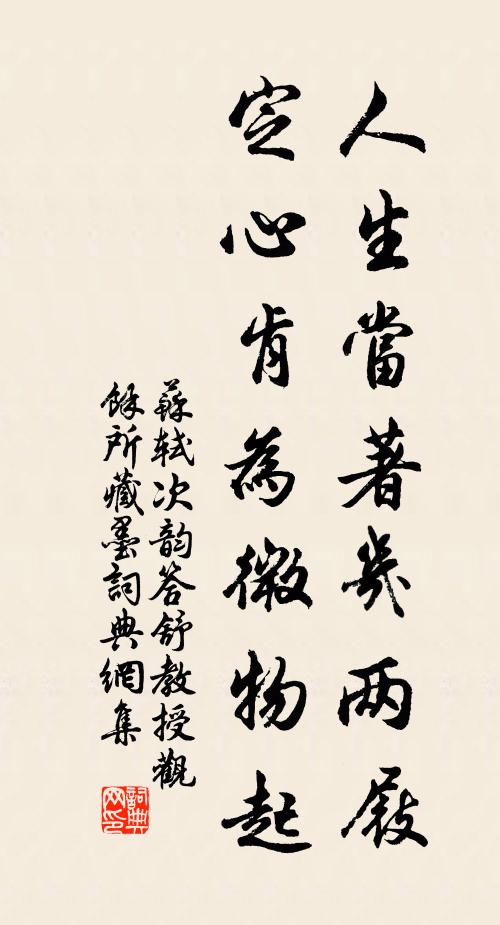 人生當著幾两屐
定心肯為微物起
蘇軾次韵答舒教授觀
餘所藏墨詞典網集
詞典网印